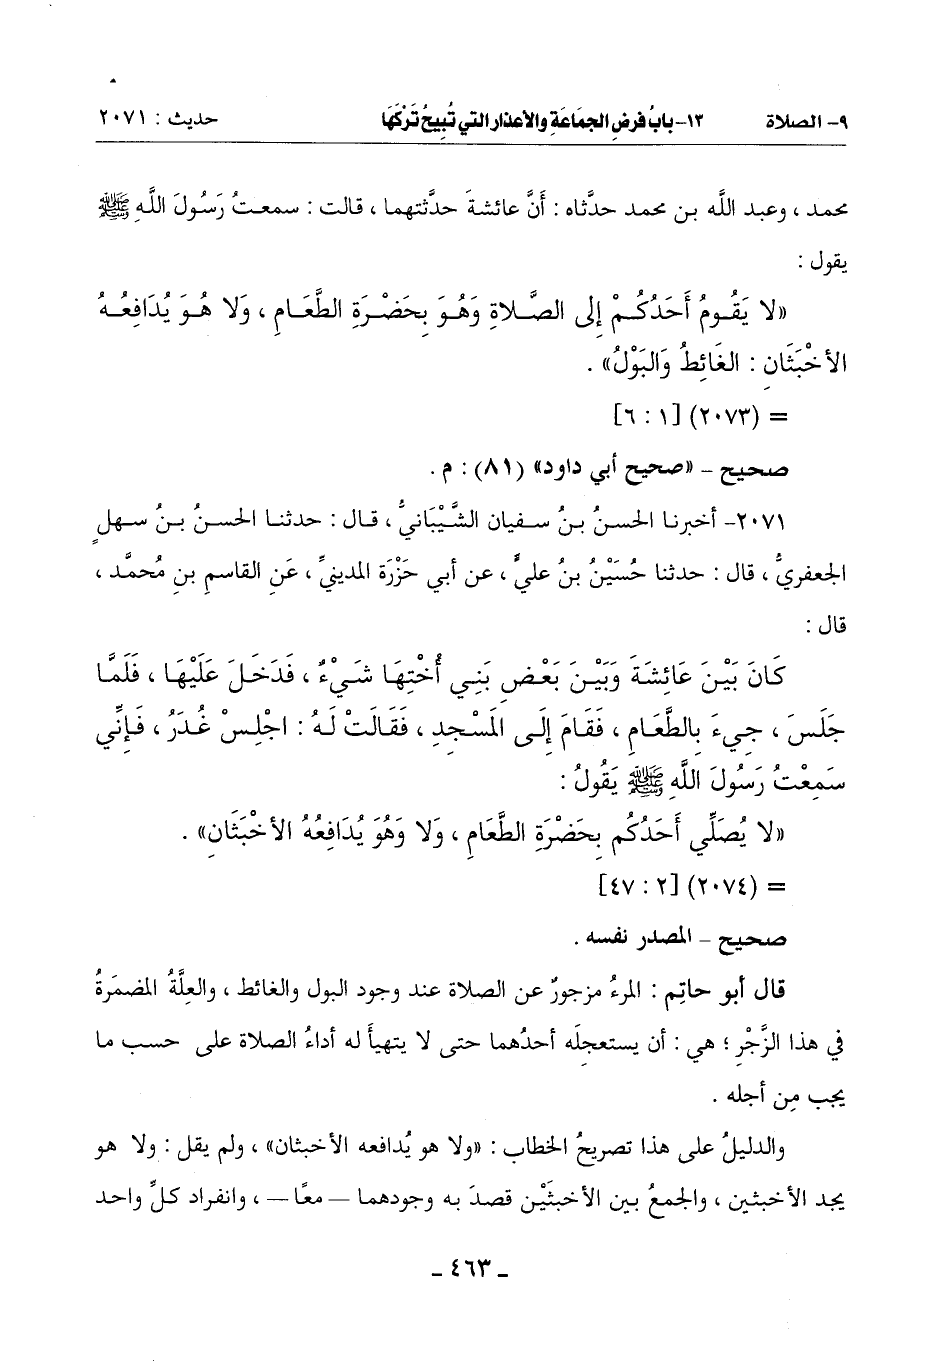 ٩- الصلاة ١٣-بابُ فرضِ الجمَاعَةِ والأعذار التي تُبِيحُ تَرْكَهَا حديث : ٢٠٧١
محمد ، وعبد اللَّه بن محمد حدثَّاه : أَنَّ عائشةَ حدثَّتهما ، قالت : سمعتُ رَسُولَ اللَّهِ ﷺ
يقول :
«لا يَقُومُ أَحَدُكُمْ إِلى الصَّلاةِ وَهُوَ بِحَضْرَةِ الطَّعَامِ ، وَلا هُوَ يُدَافِعُهُ
الأَخْبَثَانِ : الغَائِطُ وَالبَوْلُ» .
= (٢٠٧٣) [١ : ٦]
صحيح – «صحيح أبي داود» (٨١) : م .
٢٠٧١- أخبرنا الحسنُ بنُ سفيان الشَّيْبَانيُّ ، قال : حدثنا الحسنُ بنُ سهلٍ
الجعفريُّ ، قال : حدثنا حُسَيْنُ بنُ عليٍّ ، عن أبي حَزْرَة المدينيِّ ، عَنِ القاسمِ بنِ مُحمَّد ،
قال :
كَانَ بَيْنَ عَائِشَةَ وَبَيْنَ بَعْضِ بَنِي أُخْتِهَا شَيْءٌ ، فَدَخَلَ عَلَيْهَا ، فَلَمَّا
جَلَسَ ، جِيءَ بِالطَّعَامِ ، فَقَامَ إِلَى المَسْجِدِ ، فَقَالَتْ لَهُ : اجْلِسْ غُدَرُ ، فَإِنِّي
سَمِعْتُ رَسُولَ اللَّهِ ﷺ يَقُولُ :
«لا يُصَلِّي أَحَدُكُم بِحَضْرَةِ الطَّعَامِ ، وَلا وَهُوَ يُدَافِعُهُ الأَخْبَثَانِ» .
= (٢٠٧٤) [٢ : ٤٧]
صحيح – المصدر نفسه .
قال أبو حاتِم : المرءُ مزجورٌ عن الصلاة عند وجود البول والغائط ، والعِلَّةُ المضمَرةُ
في هذا الزَّجْرِ ؛ هي : أن يستعجلَه أحدُهما حتى لا يتهيأَ له أداءُ الصلاة على حسب ما
يجب مِن أجله .
والدليلُ على هذا تصريحُ الخطاب : «ولا هو يُدافعه الأخبثان» ، ولم يقل : ولا هو
يجد الأخبثين ، والجمعُ بين الأخبثَيْن قصدَ به وجودهما – معًا – ، وانفراد كلِّ واحد
- ٤٦٣ -